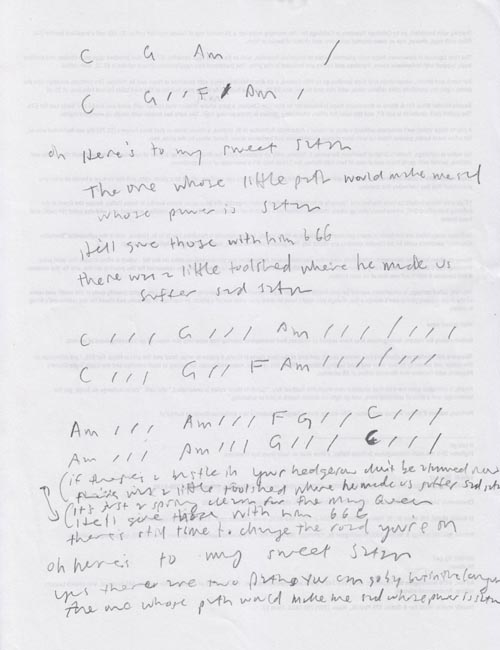 C G Am /
C G / / F / Am /
oh Here's to my sweet satan
The one whose little path would make me sad
whose power is satan
He'll give those with him 666
there was a little toolshed where he made us
suffer sad satan
C / / / G / / / Am / / / / / / /
C / / / G / / F Am / / / / / / /
Am / / / Am / / / F G / / C / / /
Am / / / Am / / / G / / / C / / /
(if there's a bustle in your hedgerow don't be alarmed now
there was a little toolshed where he made us suffer sad satan
(it's just a spring clean for the May Queen
(He'll give those with him 666
there's still time to change the road you're on
oh here's to my sweet satan
yes there are two paths you can go by but in the long run
The one whose path would make me sad whose power is satan